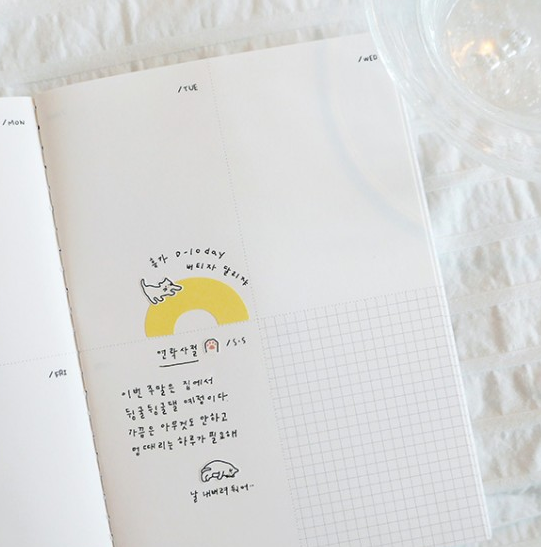 /MON
/TUE
/WED
휴가 D-10day
버티자 말리자
연락사절
/FRI
/S·S
이번 주말은 집에서
뒹굴뒹굴댈 예정이다
가끔은 아무것도 안하고
멍때리는 하루가 필요해
날 내버려둬어~